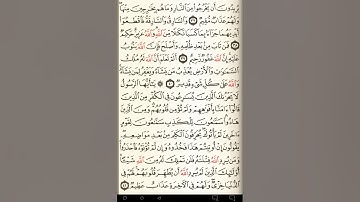 يُرِيدُونَ أَن يَخْرُجُوا۟ مِنَ ٱلنَّارِ وَمَا هُم بِخَـٰرِجِينَ مِنْهَا
وَلَهُمْ عَذَابٌ مُّقِيمٌ ٣٧ وَٱلسَّارِقُ وَٱلسَّارِقَةُ فَٱقْطَعُوٓا۟
أَيْدِيَهُمَا جَزَآءًۢ بِمَا كَسَبَا نَكَـٰلًا مِّنَ ٱللَّهِ وَٱللَّهُ عَزِيزٌ حَكِيمٌ
٣٨ فَمَن تَابَ مِنۢ بَعْدِ ظُلْمِهِۦ وَأَصْلَحَ فَإِنَّ ٱللَّهَ يَتُوبُ
عَلَيْهِ إِنَّ ٱللَّهَ غَفُورٌ رَّحِيمٌ ٣٩ أَلَمْ تَعْلَمْ أَنَّ ٱللَّهَ لَهُۥ مُلْكُ
ٱلسَّمَـٰوَٰتِ وَٱلْأَرْضِ يُعَذِّبُ مَن يَشَآءُ وَيَغْفِرُ لِمَن يَشَآءُ
وَٱللَّهُ عَلَىٰ كُلِّ شَىْءٍ قَدِيرٌ ٤٠ ۞ يَـٰٓأَيُّهَا ٱلرَّسُولُ
لَا يَحْزُنكَ ٱلَّذِينَ يُسَـٰرِعُونَ فِى ٱلْكُفْرِ مِنَ ٱلَّذِينَ
قَالُوٓا۟ ءَامَنَّا بِأَفْوَٰهِهِمْ وَلَمْ تُؤْمِن قُلُوبُهُمْ وَمِنَ ٱلَّذِينَ
هَادُوا۟ سَمَّـٰعُونَ لِلْكَذِبِ سَمَّـٰعُونَ لِقَوْمٍ
ءَاخَرِينَ لَمْ يَأْتُوكَ يُحَرِّفُونَ ٱلْكَلِمَ مِنۢ بَعْدِ مَوَاضِعِهِۦ
يَقُولُونَ إِنْ أُوتِيتُمْ هَـٰذَا فَخُذُوهُ وَإِن لَّمْ تُؤْتَوْهُ فَٱحْذَرُوا۟
وَمَن يُرِدِ ٱللَّهُ فِتْنَتَهُۥ فَلَن تَمْلِكَ لَهُۥ مِنَ ٱللَّهِ شَيْـًٔا
أُو۟لَـٰٓئِكَ ٱلَّذِينَ لَمْ يُرِدِ ٱللَّهُ أَن يُطَهِّرَ قُلُوبَهُمْ لَهُمْ فِى
ٱلدُّنْيَا خِزْىٌ وَلَهُمْ فِى ٱلْـَٔاخِرَةِ عَذَابٌ عَظِيمٌ ٤١